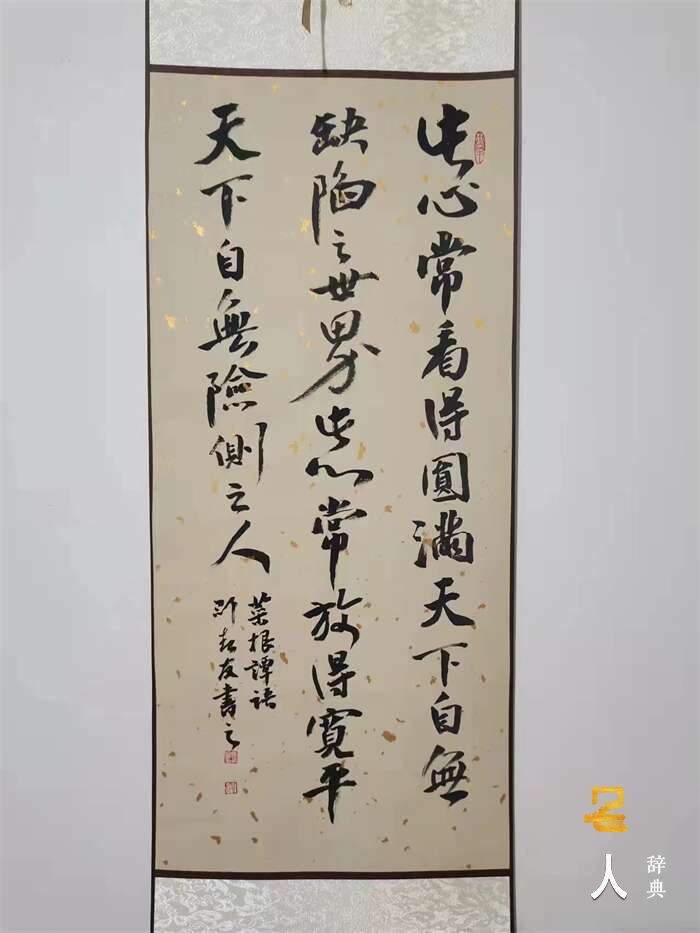 此心常看得圓滿天下自無
缺陷之世界此心常放得寬平
天下自無險側之人
菜根譚語
友書之
名人
辞典